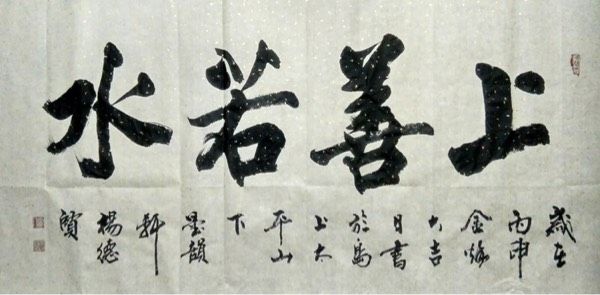 上善若水
歲在
丙申
金秋
大吉
日書
於
上太
平山
下
墨韻
軒
楊德
賢